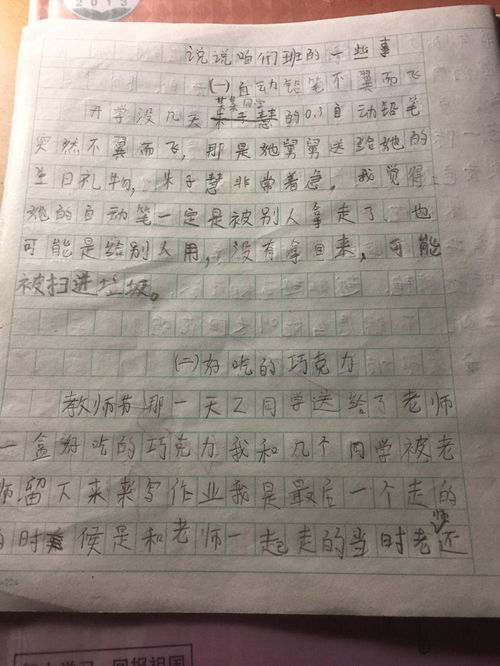 2013
说说咱们班的一些事
(一)自动铅笔不翼而飞
某某同学
开学没几天朱子慧的0.5自动铅笔
突然不翼而飞，那是她舅舅送给她的
生日礼物，朱子慧非常着急。我觉得
她的自动笔一定是被别人拿走了，也
可能是给别人用，没有拿回来，可能
被扫进垃圾。
(二)好吃的巧克力
教师节那一天Z同学送给了老师
一盒好吃的巧克力我和几个同学被老
师留下来来写作业我是最后一个走的
的时候是和老师一起走的当时老师还
回报祖国